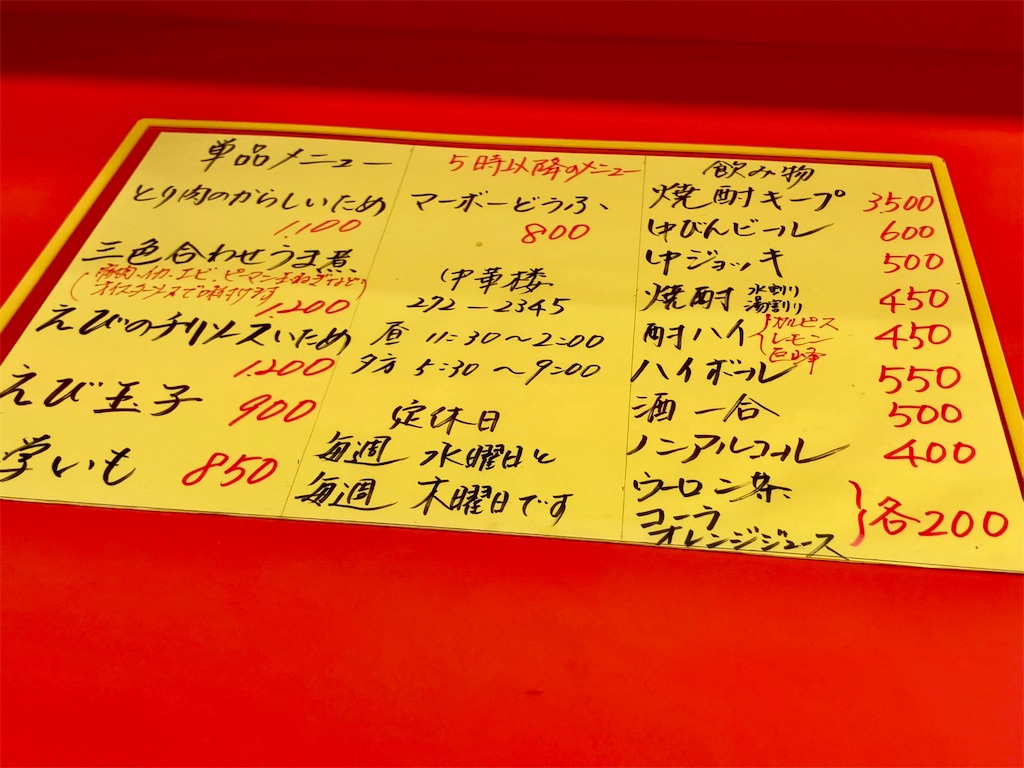 単品メニュー
とり肉のからしいため
1.100
三色合わせうま煮
(豚肉、イカ、エビ、ピーマン玉ねぎなど)
オイスターソースで味付けです
1.200
えびのチリソースいため
1.200
えび玉子
900
学いも
850
5時以降のメニュー
マーボーどうふ、
800
中華楼
272-2345
昼 11:30〜2:00
夕方 5:30〜9:00
定休日
毎週 水曜日と
毎週 木曜日です
飲み物
焼酎キープ 3.500
中びんビール 600
中ジョッキ 500
焼酎 水割り 湯割り 450
酎ハイ カルピス レモン 巨峰 450
ハイボール 550
酒一合 500
ノンアルコール 400
ウーロン茶
コーラ
オレンジジュース
各200